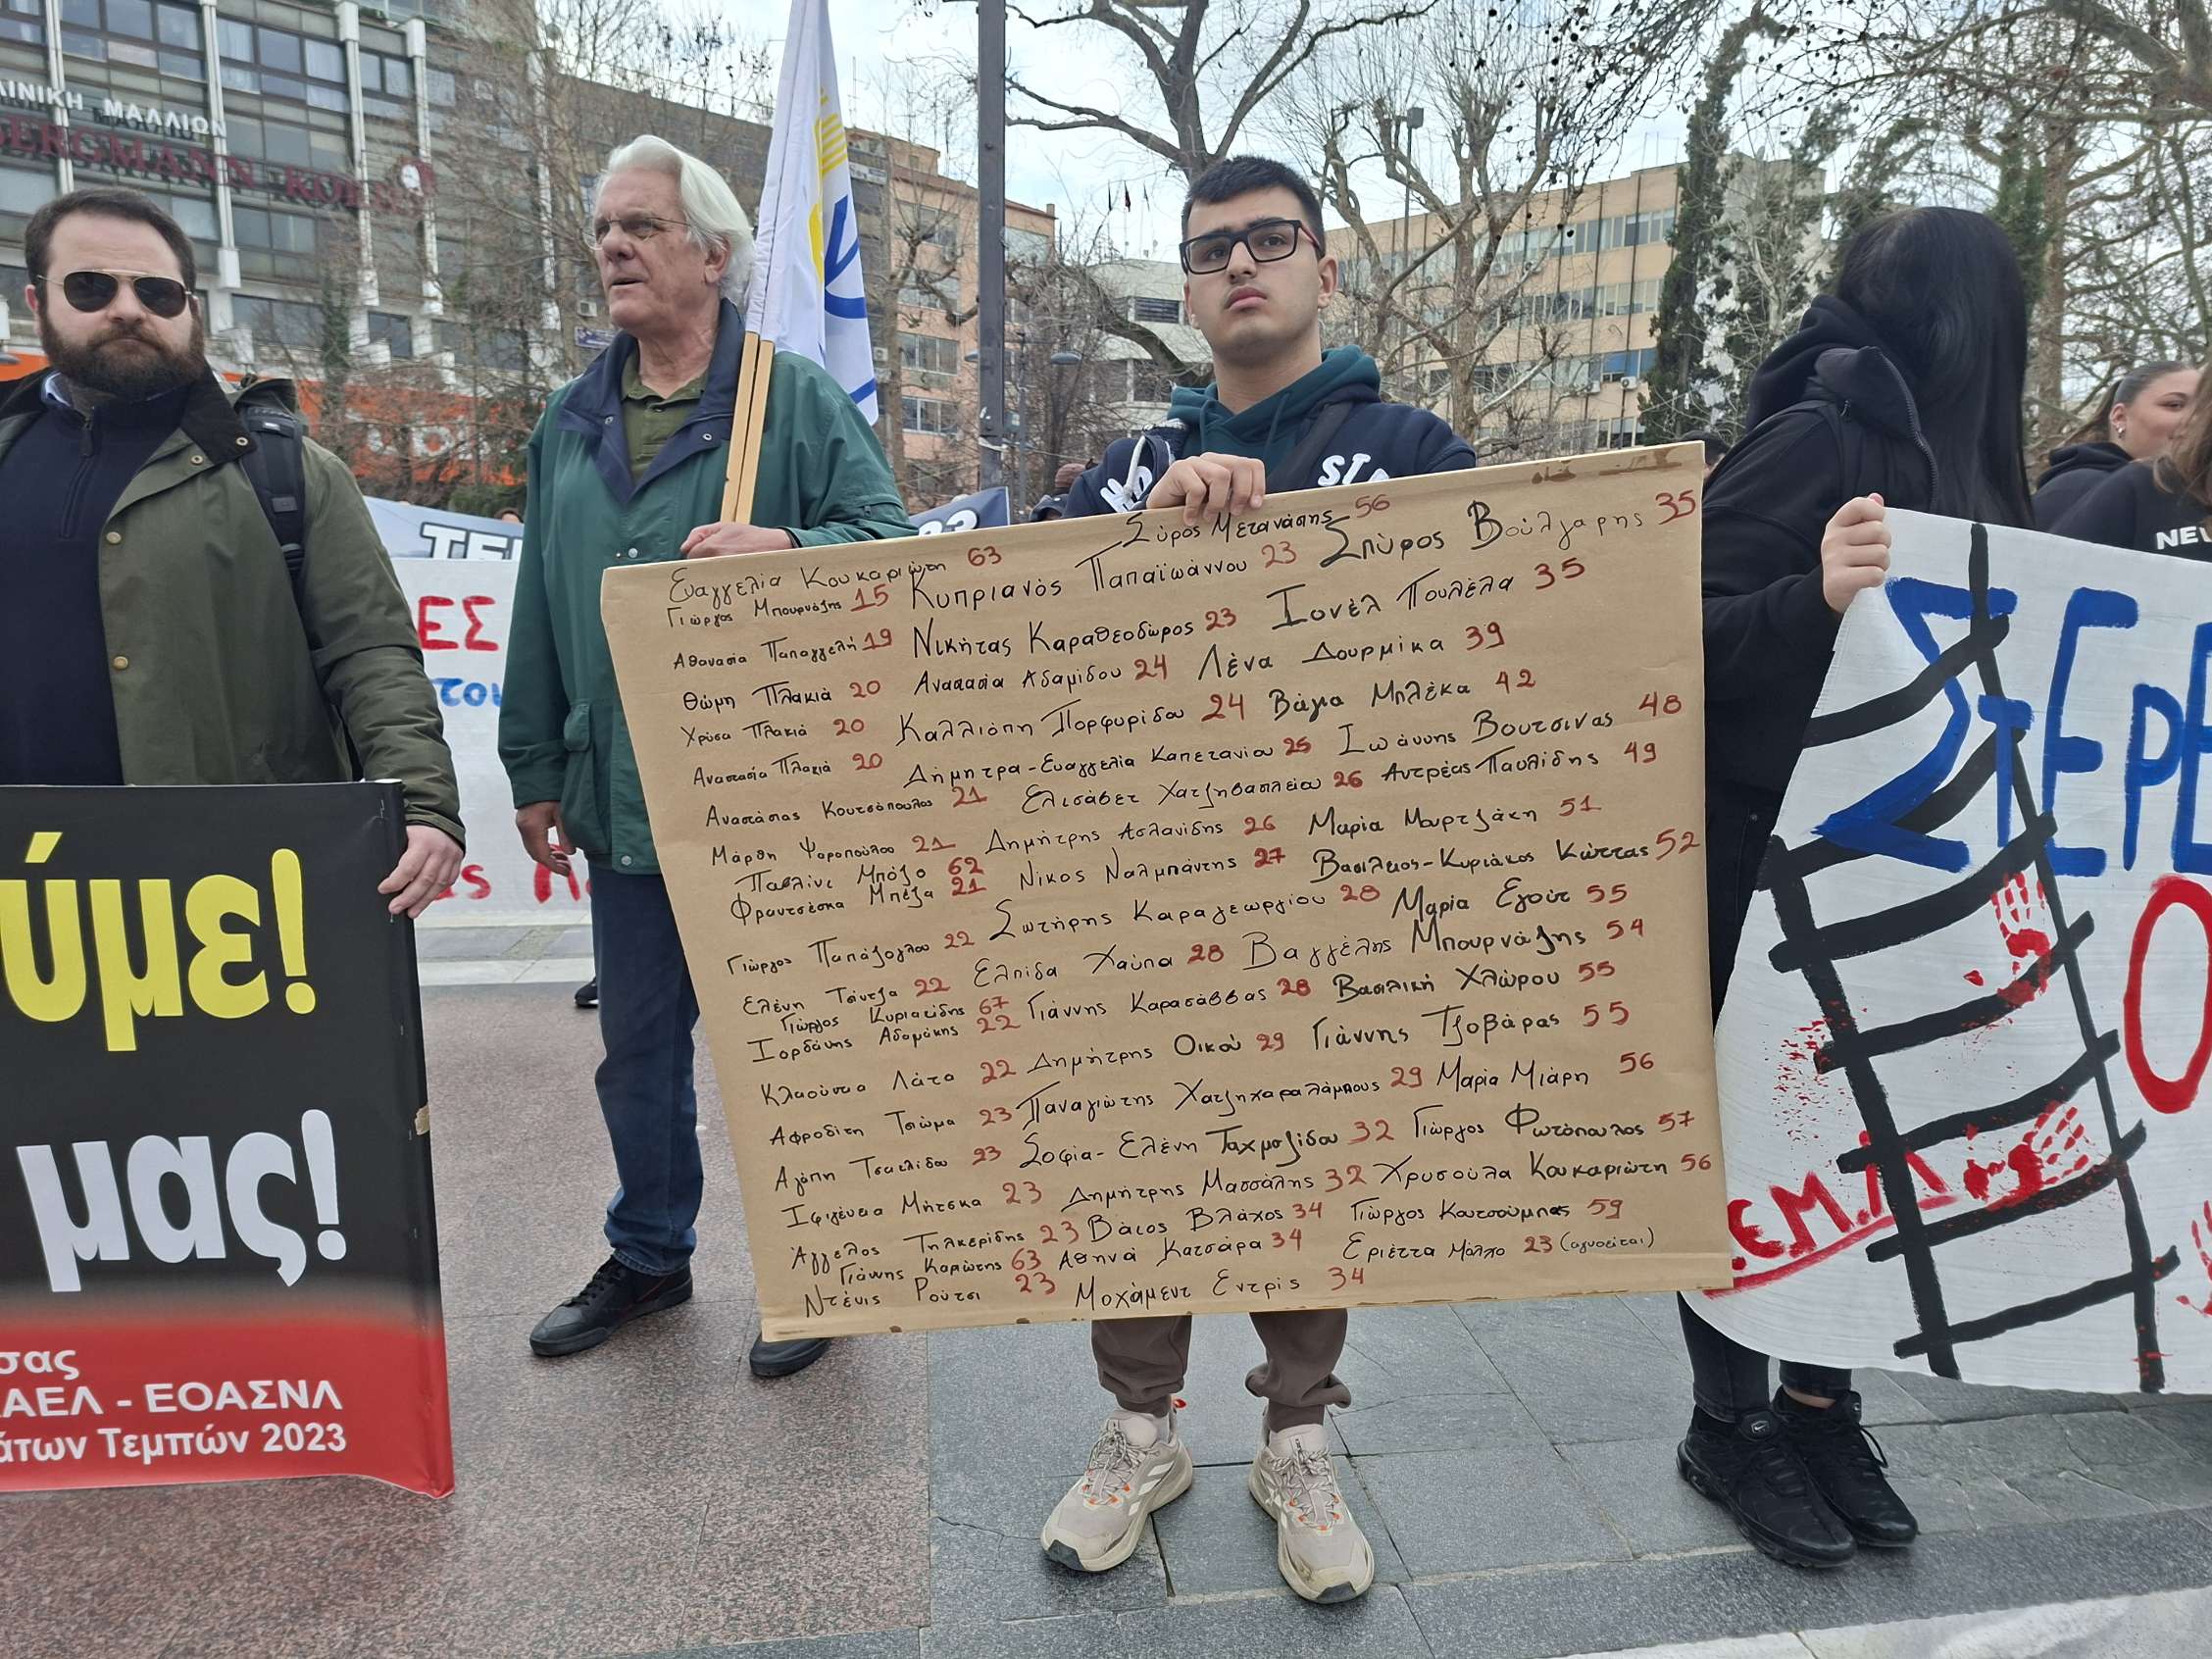 ΛΙΝΙΚΗ ΜΑΛΛΙΩΝ
BERGMANN KORD
ύμε!
μας!
σας
ΑΕΛ - ΕΟΑΣΝΛ
άτων Τεμπών 2023
ΤΕΜ
ΕΣ
του
23
Σύρος Μετανάστης 56
Ευαγγελία Κουκαριώτη 63
Γιώργος Μπουρνάζης 15 Κυπριανός Παπαϊωάννου 23 Σπύρος Βούλγαρης 35
Αθανασία Παπαγγελή 19 Νικήτας Καραθεοδώρος 23 Ιονέλ Πουλέλα 35
Θώμη Πλακιά 20 Αναστασία Αδαμίδου 24 Λένα Δουρμίκα 39
Χρύσα Πλακιά 20 Καλλιόπη Πορφυρίδου 24 Βάγια Μπλέκα 42
Αναστασία Πλακιά 20 Δήμητρα-Ευαγγελία Καπετανίου 25 Ιωάννης Βουτσινας 48
Αναστάσιος Κουτσόπουλος 21 Ελισάβετ Χατζηβασιλείου 26 Αντρέας Παυλίδης 49
Μάρθη Ψαροπούλου 21 Δημήτρης Ασλανίδης 26 Μαρία Μουρτζάκη 51
Παβλίνε Μπόζο 62
Φραντσέσκα Μπέζα 21 Νίκος Ναλμπάντης 27 Βασίλειος-Κυριάκος Κώττας 52
Γιώργος Παπάζογλου 22 Σωτήρης Καραγεωργίου 28 Μαρία Εγούτ 55
Ελένη Τσίντζα 22 Ελπίδα Χούπα 28 Βαγγέλης Μπουρνάζης 54
Γιώργος Κυριακίδης 67
Ιορδάνης Αδαμάκης 22 Γιάννης Καρασάββας 28 Βασιλική Χλώρου 55
Κλαούντια Λάτα 22 Δημήτρης Οικού 29 Γιάννης Τζοβάρας 55
Αφροδίτη Τσιώμα 23 Παναγιώτης Χατζηχαραλάμπους 29 Μαρία Μιάρη 56
Αγάπη Τσακλίδου 23 Σοφία-Ελένη Ταχμαζίδου 32 Γιώργος Φωτόπουλος 57
Ιφιγένεια Μήτσκα 23 Δημήτρης Μασσάλης 32 Χρυσούλα Κουκαριώτη 56
Άγγελος Τηλκερίδης 23 Βάιος Βλάχος 34 Γιώργος Κουτσούμπας 59
Γιάννης Καριώτης 63 Αθηνά Κατσάρα 34 Εριέττα Μόλχο 23 (αγνοείται)
Ντένις Ρούτσι 23 Μοχάμεντ Εντρίς 34
ΣΤΕΡΕ
Ο
NEW